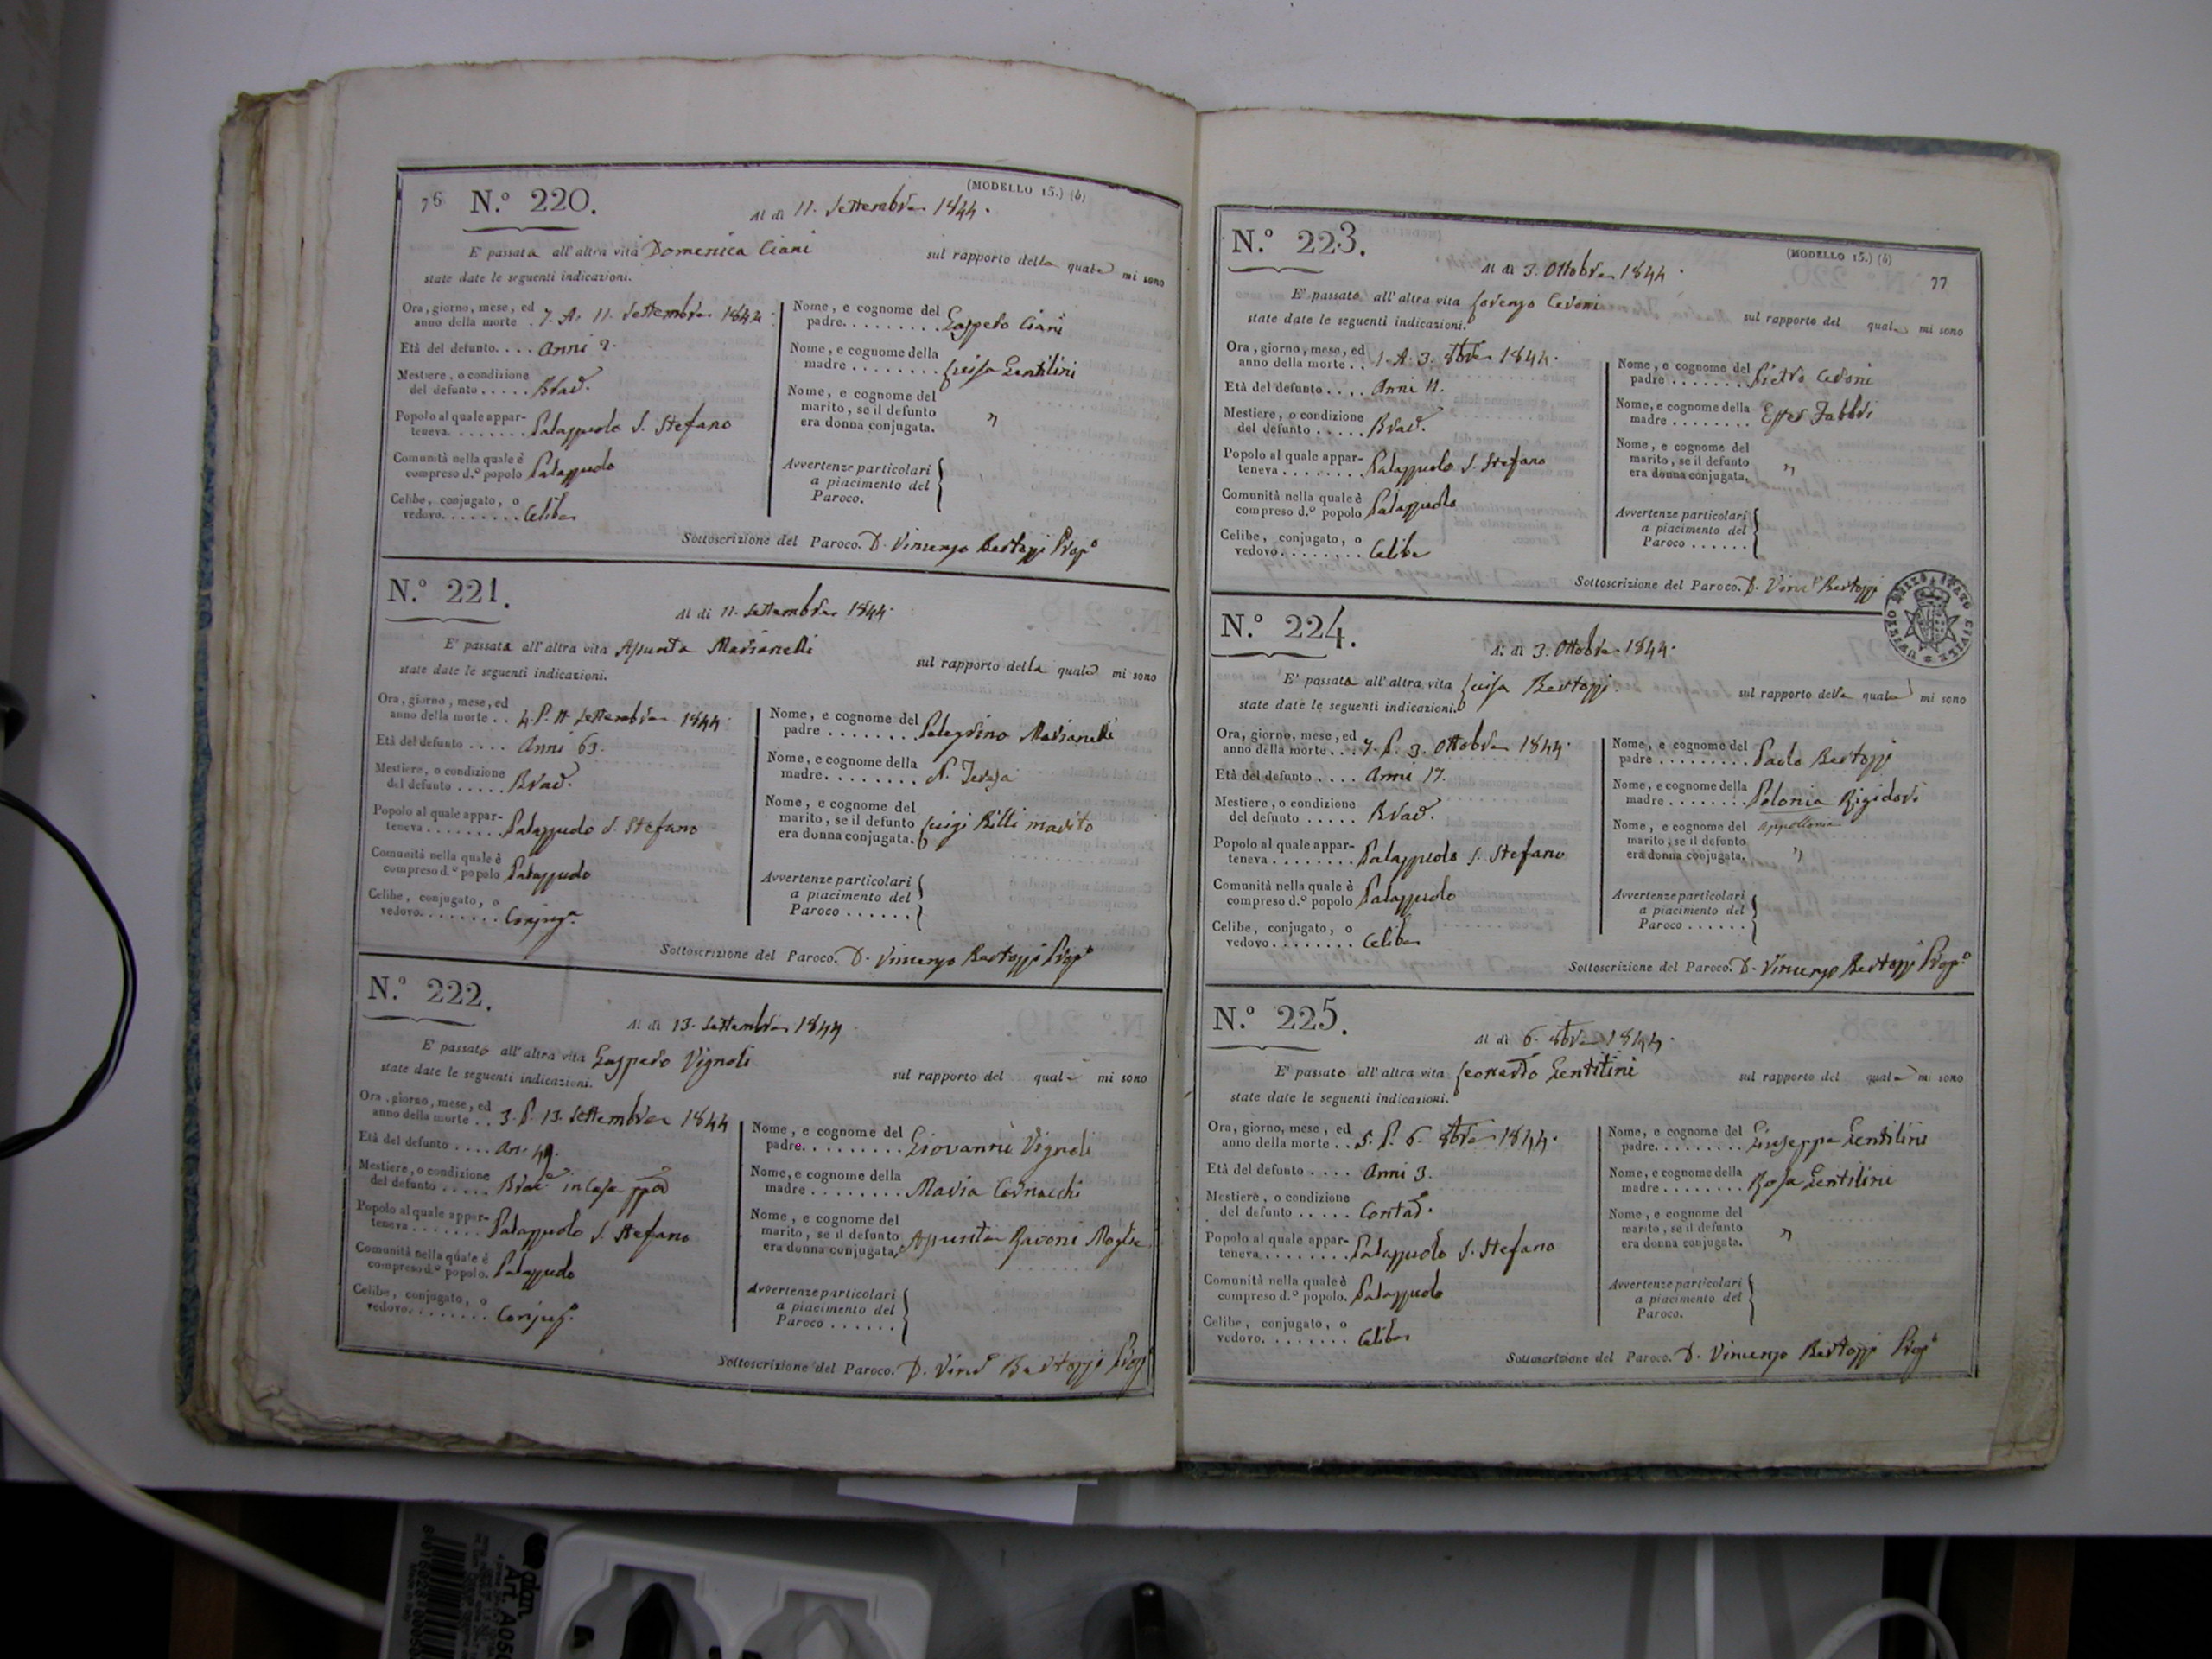 76 N.° 220. (MODELLO 15.) (b)
Al dì 11. Settembre 1844.
E' passata all' altra vita Domenica Ciani sul rapporto della quale mi sono
state date le seguenti indicazioni.
Ora, giorno, mese, ed
anno della morte . 7. A. 11. Settembre 1844.
Età del defunto. . . . Anni 2.
Mestiere, o condizione
del defunto . . . . . Brac.
Popolo al quale appar-
teneva. . . . . . . . Palazzuolo S. Stefano
Comunità nella quale è
compreso d.° popolo Palazzuolo
Celibe, conjugato, o
vedovo. . . . . . . . Celibe
Nome, e cognome del
padre. . . . . . . . . Gaspero Ciani
Nome, e cognome della
madre . . . . . . . . Luisa Gentilini
Nome, e cognome del
marito, se il defunto
era donna conjugata. "
Avvertenze particolari
a piacimento del
Paroco.
Sottoscrizione del Paroco. D. Vincenzo Bertozzi Prop.°
N.° 221.
Al dì 11. Settembre 1844.
E' passata all' altra vita Assunta Marianelli sul rapporto della quale mi sono
state date le seguenti indicazioni.
Ora, giorno, mese, ed
anno della morte . . 4. P. 11 Settembre 1844.
Età del defunto . . . . Anni 63.
Mestiere, o condizione
del defunto . . . . . Brac.
Popolo al quale appar-
teneva . . . . . . . . Palazzuolo S. Stefano
Comunità nella quale è
compreso d.° popolo Palazzuolo
Celibe, conjugato, o
vedovo. . . . . . . . Conjug.a
Nome, e cognome del
padre . . . . . . . . Pelegrino Marianelli
Nome, e cognome della
madre. . . . . . . . N. Teresa
Nome, e cognome del
marito, se il defunto
era donna conjugata. Luigi Billi marito
Avvertenze particolari
a piacimento del
Paroco . . . . . .
Sottoscrizione del Paroco. D. Vincenzo Bertozzi Prop.°
N.° 222.
Al dì 13. Settembre 1844.
E' passato all' altra vita Gaspero Vignoli sul rapporto del quale mi sono
state date le seguenti indicazioni.
Ora, giorno, mese, ed
anno della morte . . 3. P. 13. Settembre 1844
Età del defunto . . . . An. 49.
Mestiere, o condizione
del defunto . . . . . Brac. in Casa ppa
Popolo al quale appar-
teneva . . . . . . . Palazzuolo S. Stefano
Comunità nella quale è
compreso d.° popolo. Palazzuolo
Celibe, conjugato, o
vedovo. . . . . . . . Conjug.
Nome, e cognome del
padre. . . . . . . . . Giovanni Vignoli
Nome, e cognome della
madre . . . . . . . . Maria Cornacchi
Nome, e cognome del
marito, se il defunto
era donna conjugata. Assunta Ravoni Moglie
Avvertenze particolari
a piacimento del
Paroco . . . . . .
Sottoscrizione del Paroco. D. Vinc.o Bertozzi Prop.
N.° 223. (MODELLO 15.) (b)
77
Al dì 3. Ottobre 1844.
E' passato all' altra vita Lorenzo Ceroni sul rapporto del quale mi sono
state date le seguenti indicazioni.
Ora, giorno, mese, ed
anno della morte . . 1. A. 3. 8bre 1844.
Età del defunto . . . . Anni 11.
Mestiere, o condizione
del defunto . . . . . Brac.
Popolo al quale appar-
teneva . . . . . . . Palazzuolo S. Stefano
Comunità nella quale è
compreso d.° popolo Palazzuolo
Celibe, conjugato, o
vedovo. . . . . . . . Celibe
Nome, e cognome del
padre . . . . . . . Pietro Ceroni
Nome, e cognome della
madre . . . . . . . . Ester Fabbri
Nome, e cognome del
marito, se il defunto
era donna conjugata. "
Avvertenze particolari
a piacimento del
Paroco . . . . . .
Sottoscrizione del Paroco. D. Vinc.o Bertozzi
UFFIZIO DELLO STATO CIVILE
N.° 224.
Al dì 3. Ottobre 1844.
E' passata all' altra vita Luisa Bertozzi. sul rapporto della quale mi sono
state date le seguenti indicazioni.
Ora, giorno, mese, ed
anno della morte . . . 7. P. 3. Ottobre 1844.
Età del defunto . . . . Anni 17.
Mestiere, o condizione
del defunto . . . . . Brac.
Popolo al quale appar-
teneva . . . . . . . . Palazzuolo S. Stefano
Comunità nella quale è
compreso d.° popolo Palazzuolo
Celibe, conjugato, o
vedovo . . . . . . . . Celibe
Nome, e cognome del
padre . . . . . . . . . Paolo Bertozzi
Nome, e cognome della
madre . . . . . . . . Polonia Rigidori
Appollonia
Nome, e cognome del
marito, se il defunto
era donna conjugata. "
Avvertenze particolari
a piacimento del
Paroco . . . . . .
Sottoscrizione del Paroco. D. Vincenzo Bertozzi Prop.°
N.° 225.
Al dì 6. 8bre 1844.
E' passato all' altra vita Leonardo Gentilini sul rapporto del quale mi sono
state date le seguenti indicazioni.
Ora, giorno, mese, ed
anno della morte . . 5. P. 6. 8bre 1844.
Età del defunto . . . . Anni 3.
Mestiere, o condizione
del defunto . . . . . Contad.
Popolo al quale appar-
teneva. . . . . . . . Palazzuolo S. Stefano
Comunità nella quale è
compreso d.° popolo. Palazzuolo
Celibe, conjugato, o
vedovo. . . . . . . . Celibe
Nome, e cognome del
padre. . . . . . . . Giuseppe Gentilini
Nome, e cognome della
madre . . . . . . . . Rosa Gentilini
Nome, e cognome del
marito, se il defunto
era donna conjugata. "
Avvertenze particolari
a piacimento del
Paroco.
Sottoscrizione del Paroco. D. Vincenzo Bertozzi Prop.°